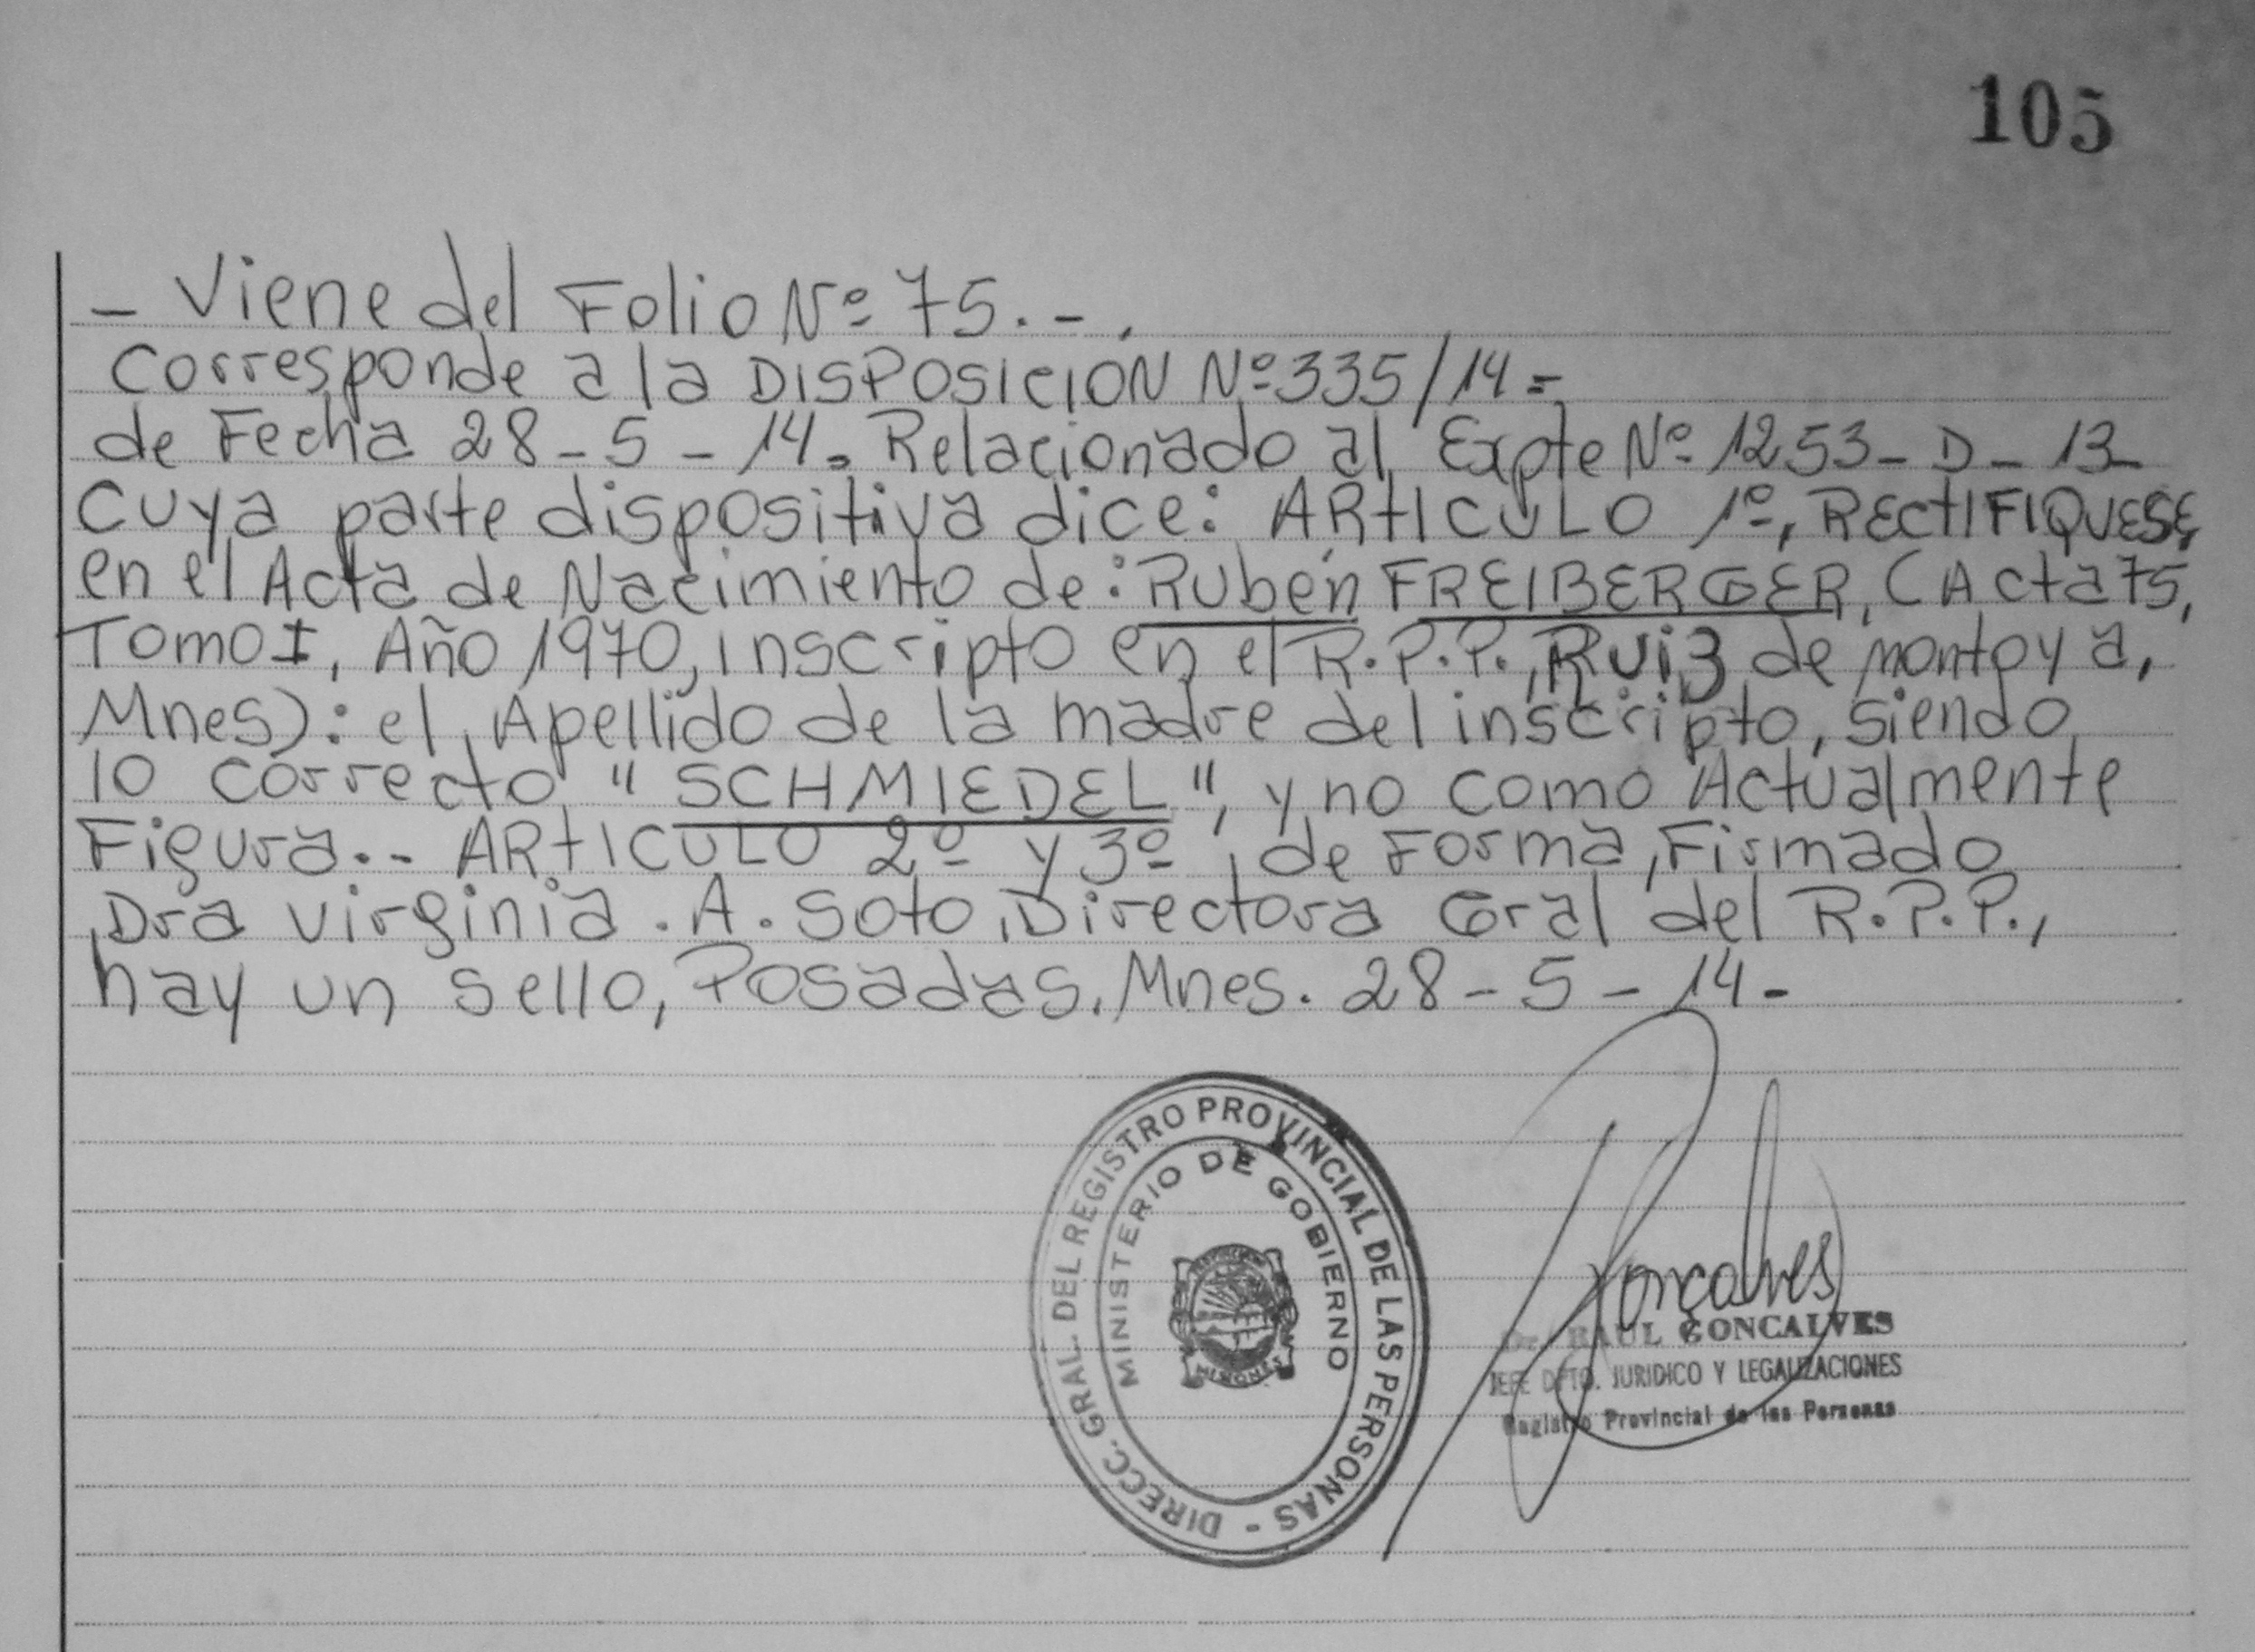 105
- Viene del Folio Nº 75.-.
Corresponde a la DISPOSICION Nº 335/14 =
de Fecha 28-5-14. Relacionado al Expte Nº 1253-D-13-
Cuya parte dispositiva dice: ARtICULO 1º, RECtIFIQUESE,
en el Acta de Nacimiento de: Rubén FREIBERGER, (Acta 75,
Tomo I, Año 1970, inscripto en el R.P.P., Ruiz de montoya,
Mnes): el Apellido de la madre del inscripto, siendo
lo correcto "SCHMIEDEL", y no como Actualmente
Figura.-- ARtICULO 2º y 3º, de Forma, Firmado
Dra Virginia. A. Soto, Directora Gral del R.P.P.,
hay un sello, Posadas, Mnes. 28-5-14-
DIRECC. GRAL. DEL REGISTRO PROVINCIAL DE LAS PERSONAS -
MINISTERIO DE GOBIERNO
MISIONES
Gonçalves
Dr. RAUL GONCALVES
JEFE DPTO. JURIDICO Y LEGALIZACIONES
Registro Provincial de las Personas